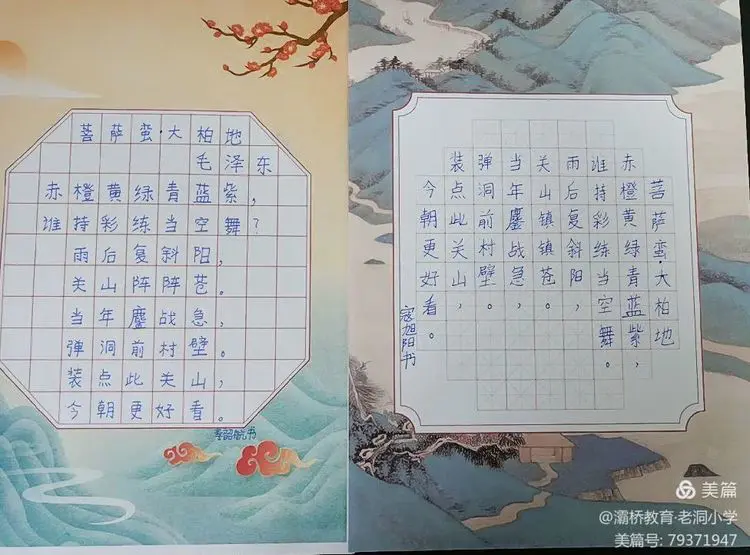 菩萨蛮·大柏地
毛泽东
赤橙黄绿青蓝紫，
谁持彩练当空舞？
雨后复斜阳，
关山阵阵苍。
当年鏖战急，
弹洞前村壁。
装点此关山，
今朝更好看。
菩萨蛮·大柏地
赤橙黄绿青蓝紫，
谁持彩练当空舞。
雨后复斜阳，
关山镇镇苍。
当年鏖战急，
弹洞前村壁。
装点此关山，
今朝更好看。
寇旭阳书
美篇
@灞桥教育·老洞小学
美篇号: 79371947